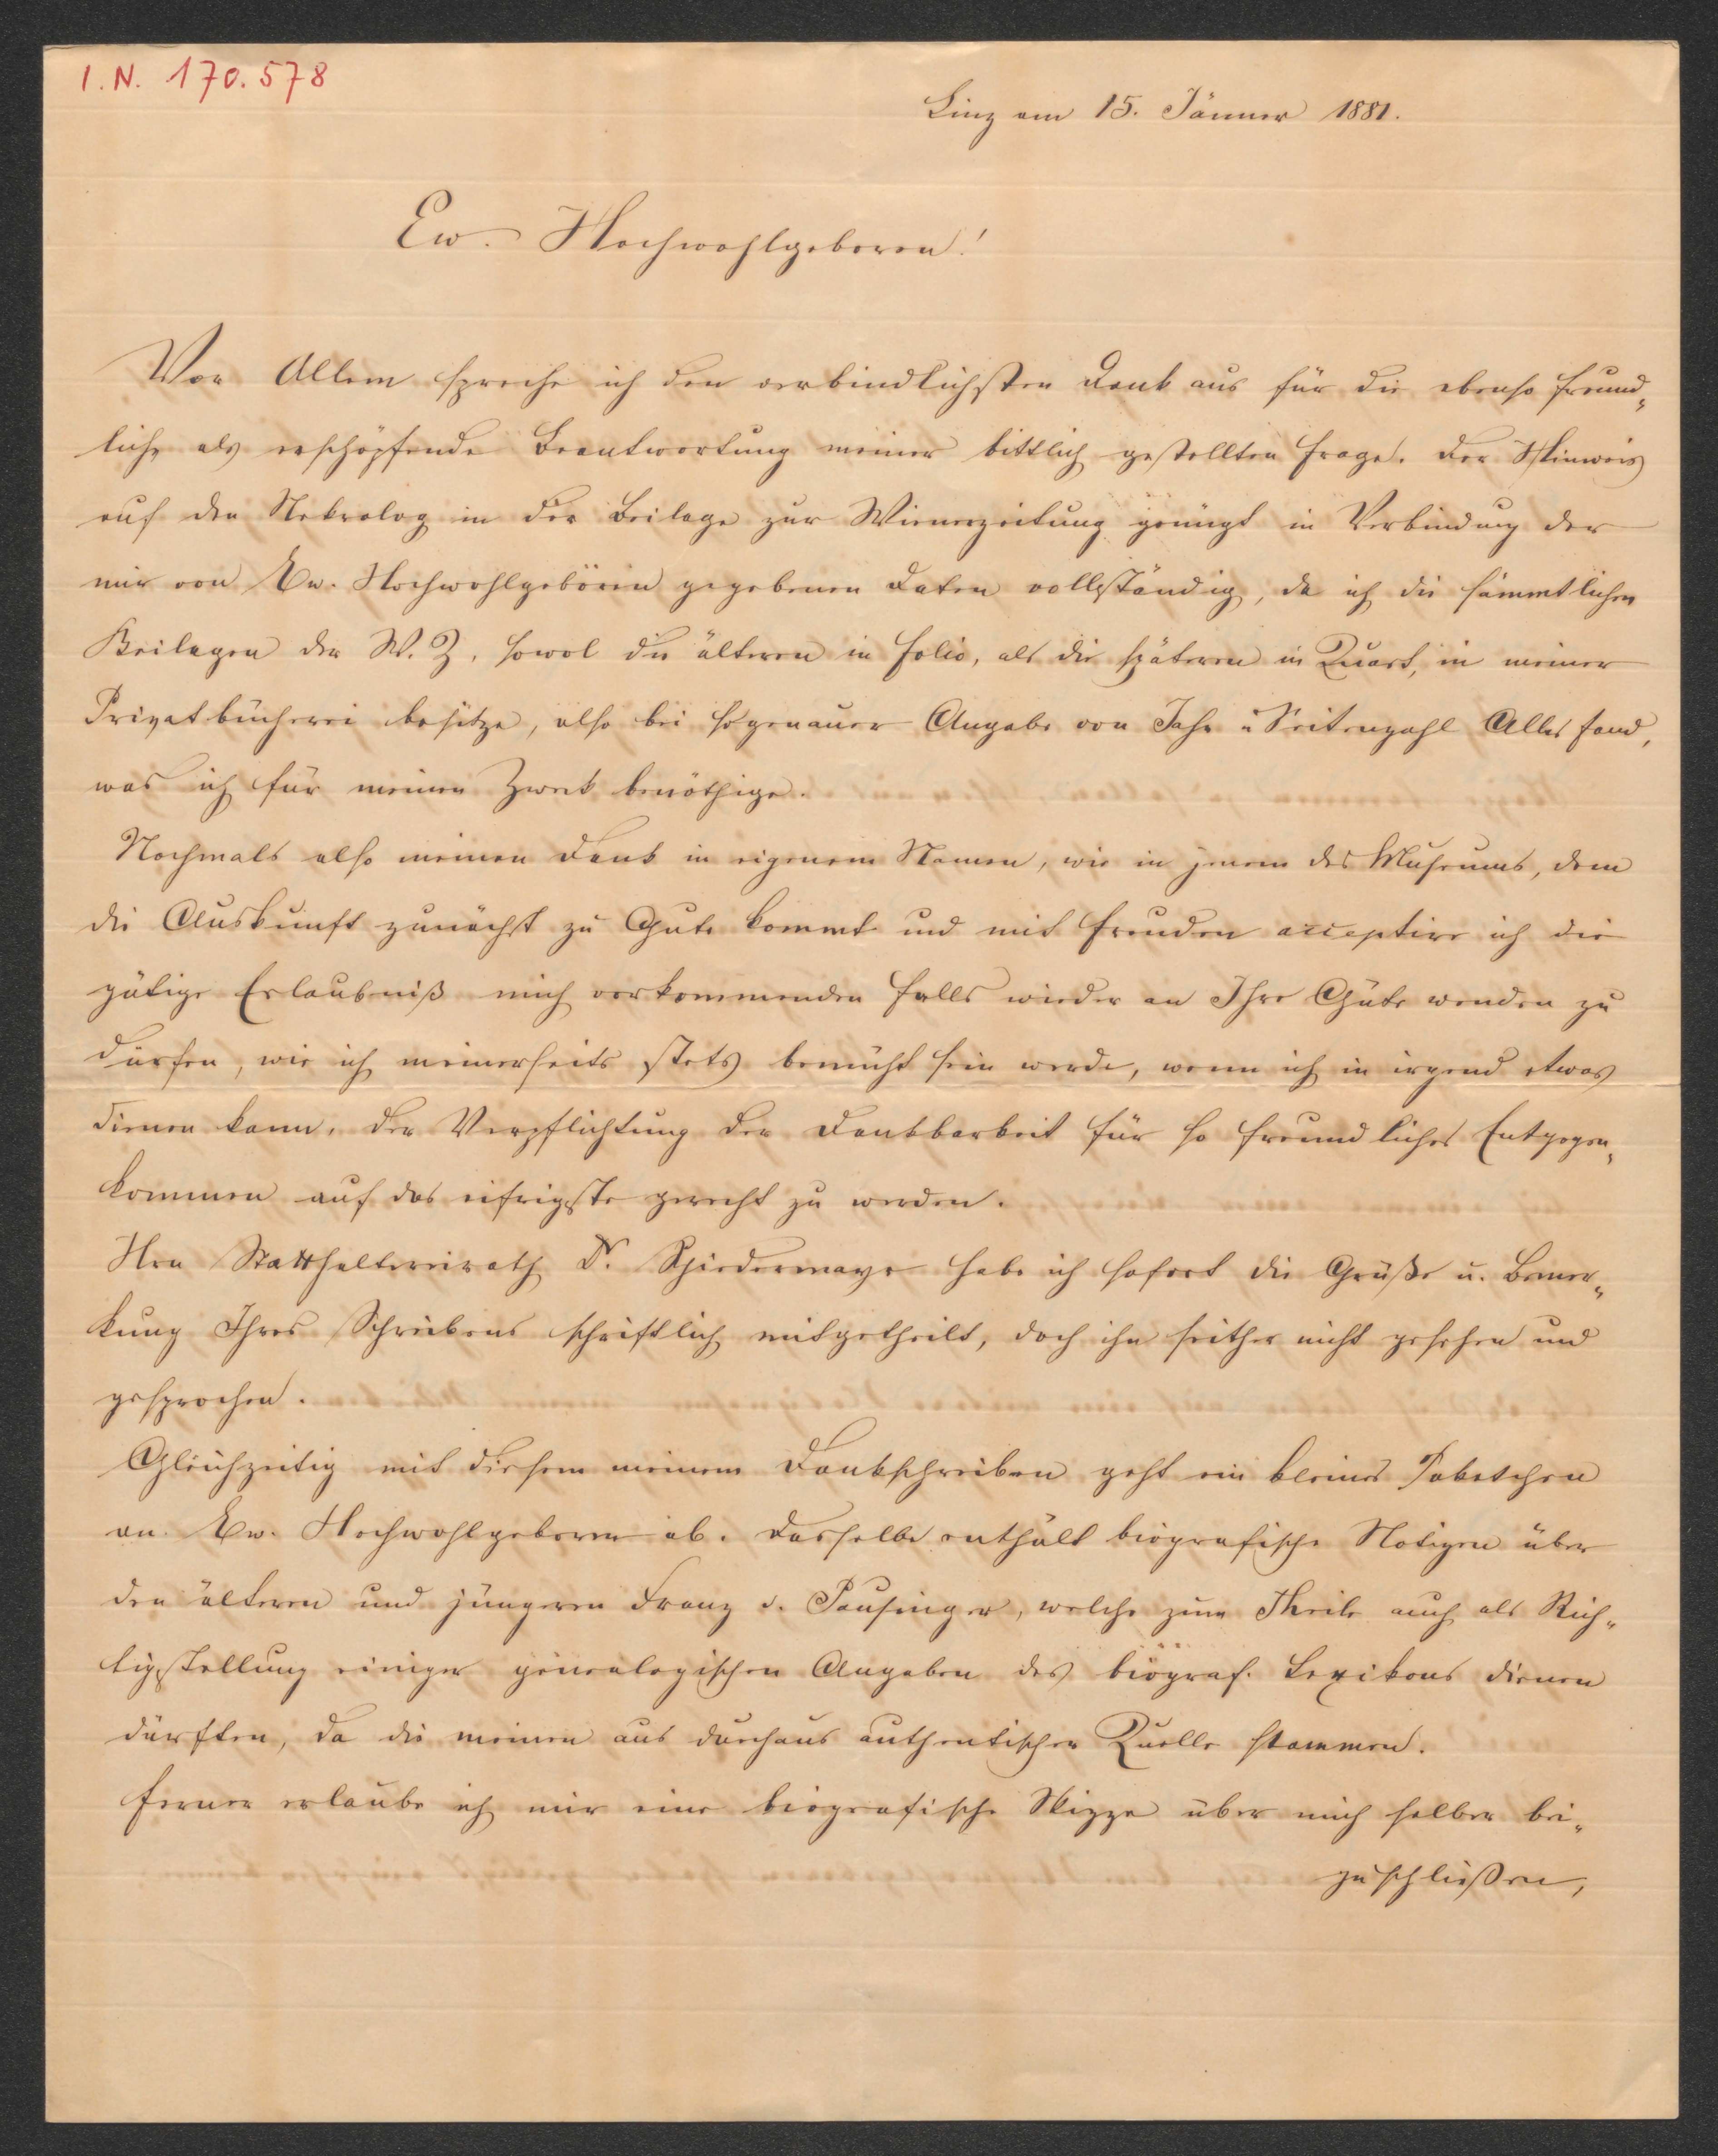 I. N. 170.578
Linz am 15. Jänner 1881.
Ew. Hochwohlgeboren!
Vor Allem spreche ich den verbindlichsten Dank aus für die ebenso freund-
liche als erschöpfende Beantwortung meiner bittlich gestellten Frage. Der Hinweis
auf den Nekrolog in der Beilage zur Wienerzeitung genügt in Verbindung der
mir von Ew. Hochwohlgeboren gegebenen Daten vollständig, da ich die sämmtlichen
Beilagen der W. Z. sowol die älteren in Folio, als die späteren in Quart, in meiner
Privatbücherei besitze, also bei so genauer Angabe von Jahr u Seitenzahl Alles fand,
was ich für meinen Zweck benöthige.
Nochmals also meinen Dank in eigenem Namen, wie in jenem des Museums, dem
die Auskunft zunächst zu Gute kommt und mit Freuden acceptire ich die
gütige Erlaubniß mich vorkommenden Falls wieder an Ihre Güte wenden zu
dürfen, wie ich meinerseits stets bemüht sein werde, wenn ich in irgend etwas
dienen kann, der Verpflichtung der Dankbarkeit für so freundliches Entgegen-
kommen auf das eifrigste gerecht zu werden.
Hrn Statthaltereirath Dr. Schiedermayr habe ich sofort die Grüße u. Bemer-
kung Ihres Schreibens schriftlich mitgetheilt, doch ihn seither nicht gesehen und
gesprochen.
Gleichzeitig mit diesem meinem Dankschreiben geht ein kleines Paketchen
an Ew. Hochwohlgeboren ab. Dasselbe enthält biografische Notizen über
den älteren und jüngeren Franz v. Pausinger, welche zum Theile auch als Rich-
tigstellung einiger genealogischen Angaben des biograf. Lexikons dienen
dürften, da die meinen aus durchaus authentischer Quelle stammen.
Ferner erlaube ich mir eine biografische Skizze über mich selber bei-
zuschließen,